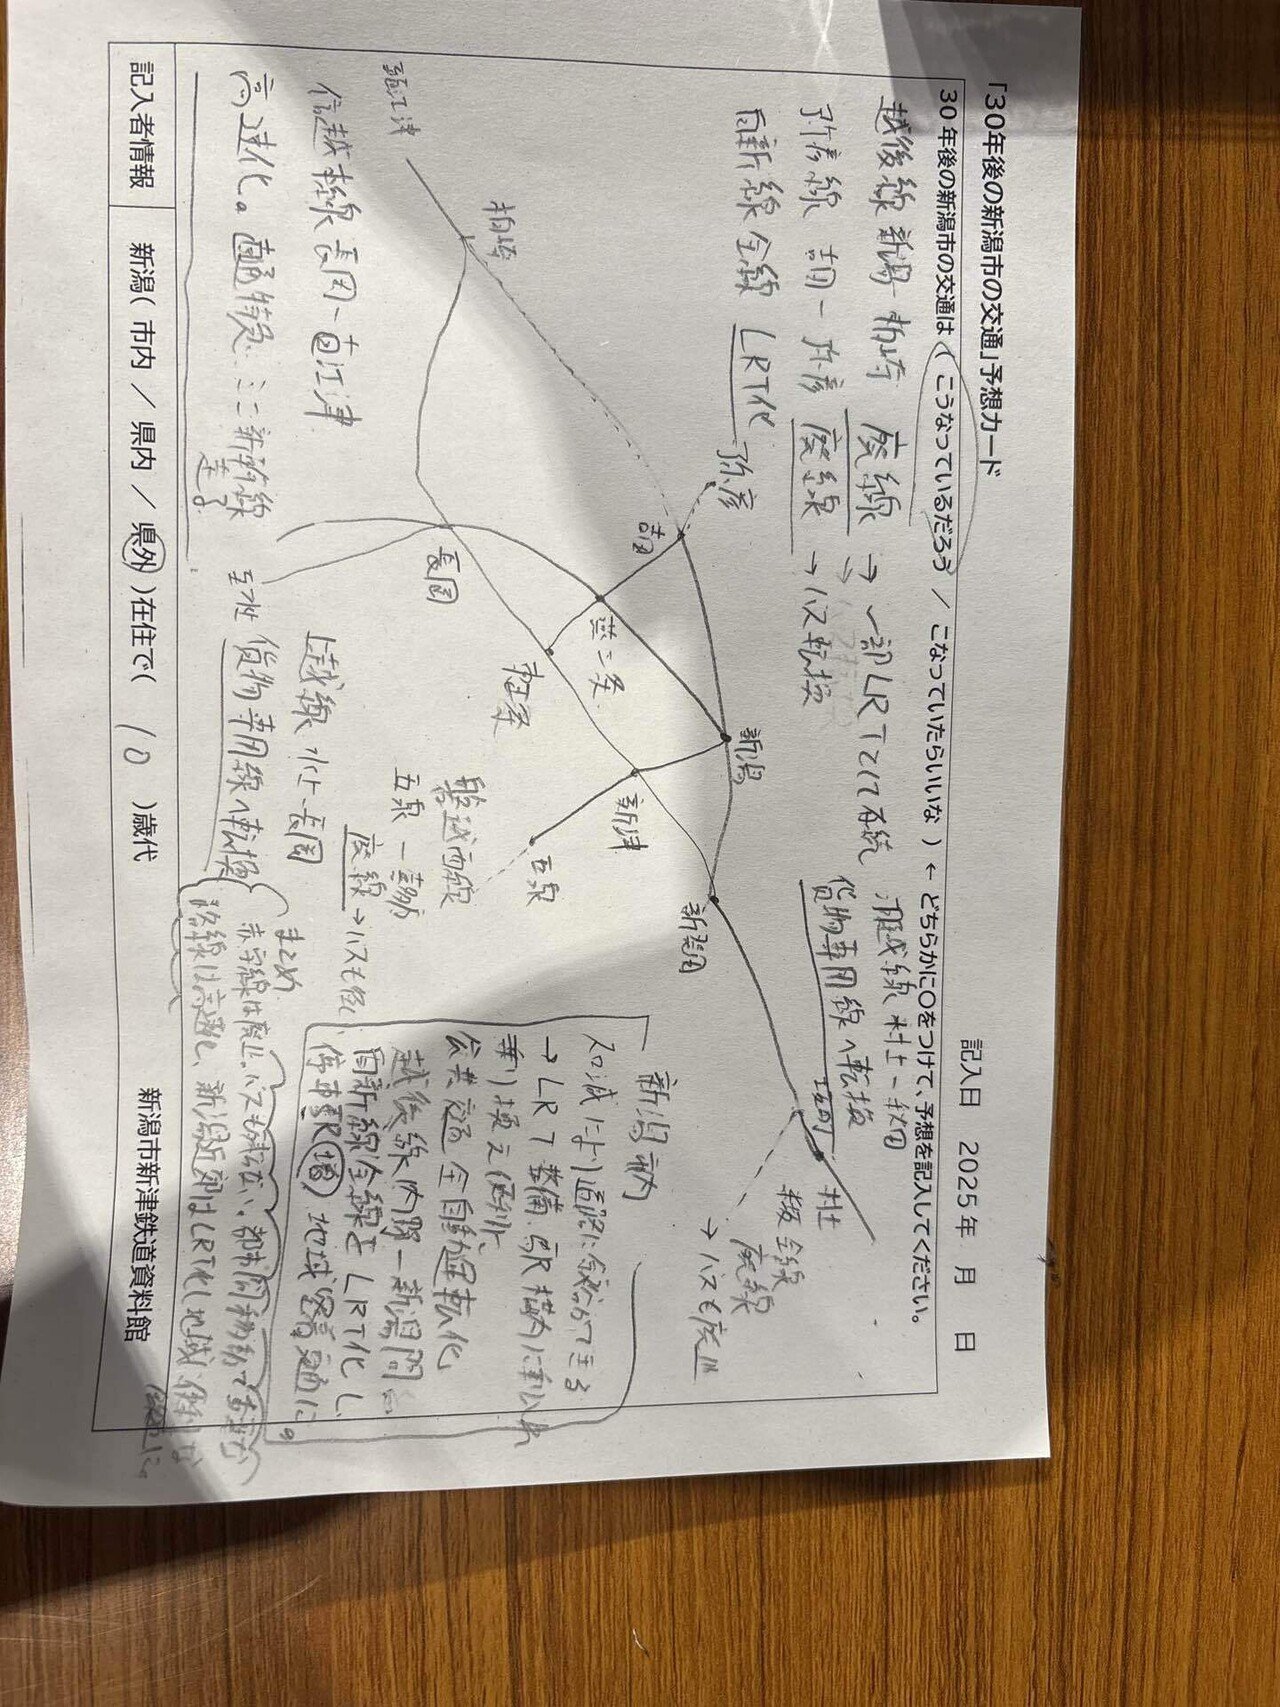 「30年後の新潟市の交通」予想カード
記入日 2025年 月 日
30年後の新潟市の交通は（ こうなっているだろう / こなっていたらいいな ）← どちらかに○をつけて、予想を記入してください。
越後線 新潟-柏崎 廃線 → 一部LRTとして存続
弥彦線 吉田-弥彦 廃線 → バス転換
白新線全線 LRT化
羽越線 村上-秋田
貨物専用線へ転換
弥彦
吉田
燕三条
東三条
新潟
新津
五泉
新発田
坂町
村上
米坂全線
廃線
→ バスも廃止
直江津
柏崎
長岡
信越本線 長岡-直江津
高速化。直通特急、ミニ新幹線
走る。
上越線 水上-長岡
貨物専用線へ転換
磐越西線
五泉-
廃線 → バスも
新潟市内
人口減により道路に余裕ができる
→ LRT整備、駅構内に乗り入れ
乗り換え便利に
公共交通全自動運転化
越後線内野-新潟間
白新線全線をLRT化し、
停車駅増 地域密着交通に。
まとめ
赤字線は廃止。バスも
都市間移動で重要な
路線は高速化、新潟近郊はLRT化し地域
に。
記入者情報
新潟（ 市内 / 県内 / 県外 ）在住で（ 10 ）歳代
新潟市新津鉄道資料館